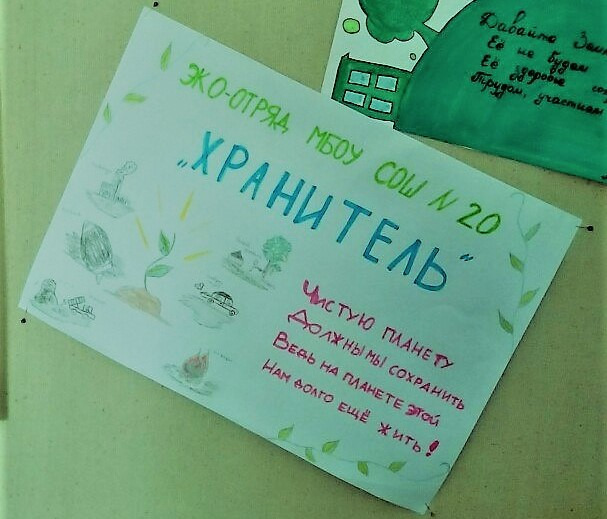 ЭКО-ОТРЯД МБОУ СОШ N 20
„ХРАНИТЕЛЬ“
Чистую планету
Должны мы сохранить
Ведь на планете этой
Нам долго ещё жить!
Давайте
Её не будем
Её здоровье
Трудом, участием